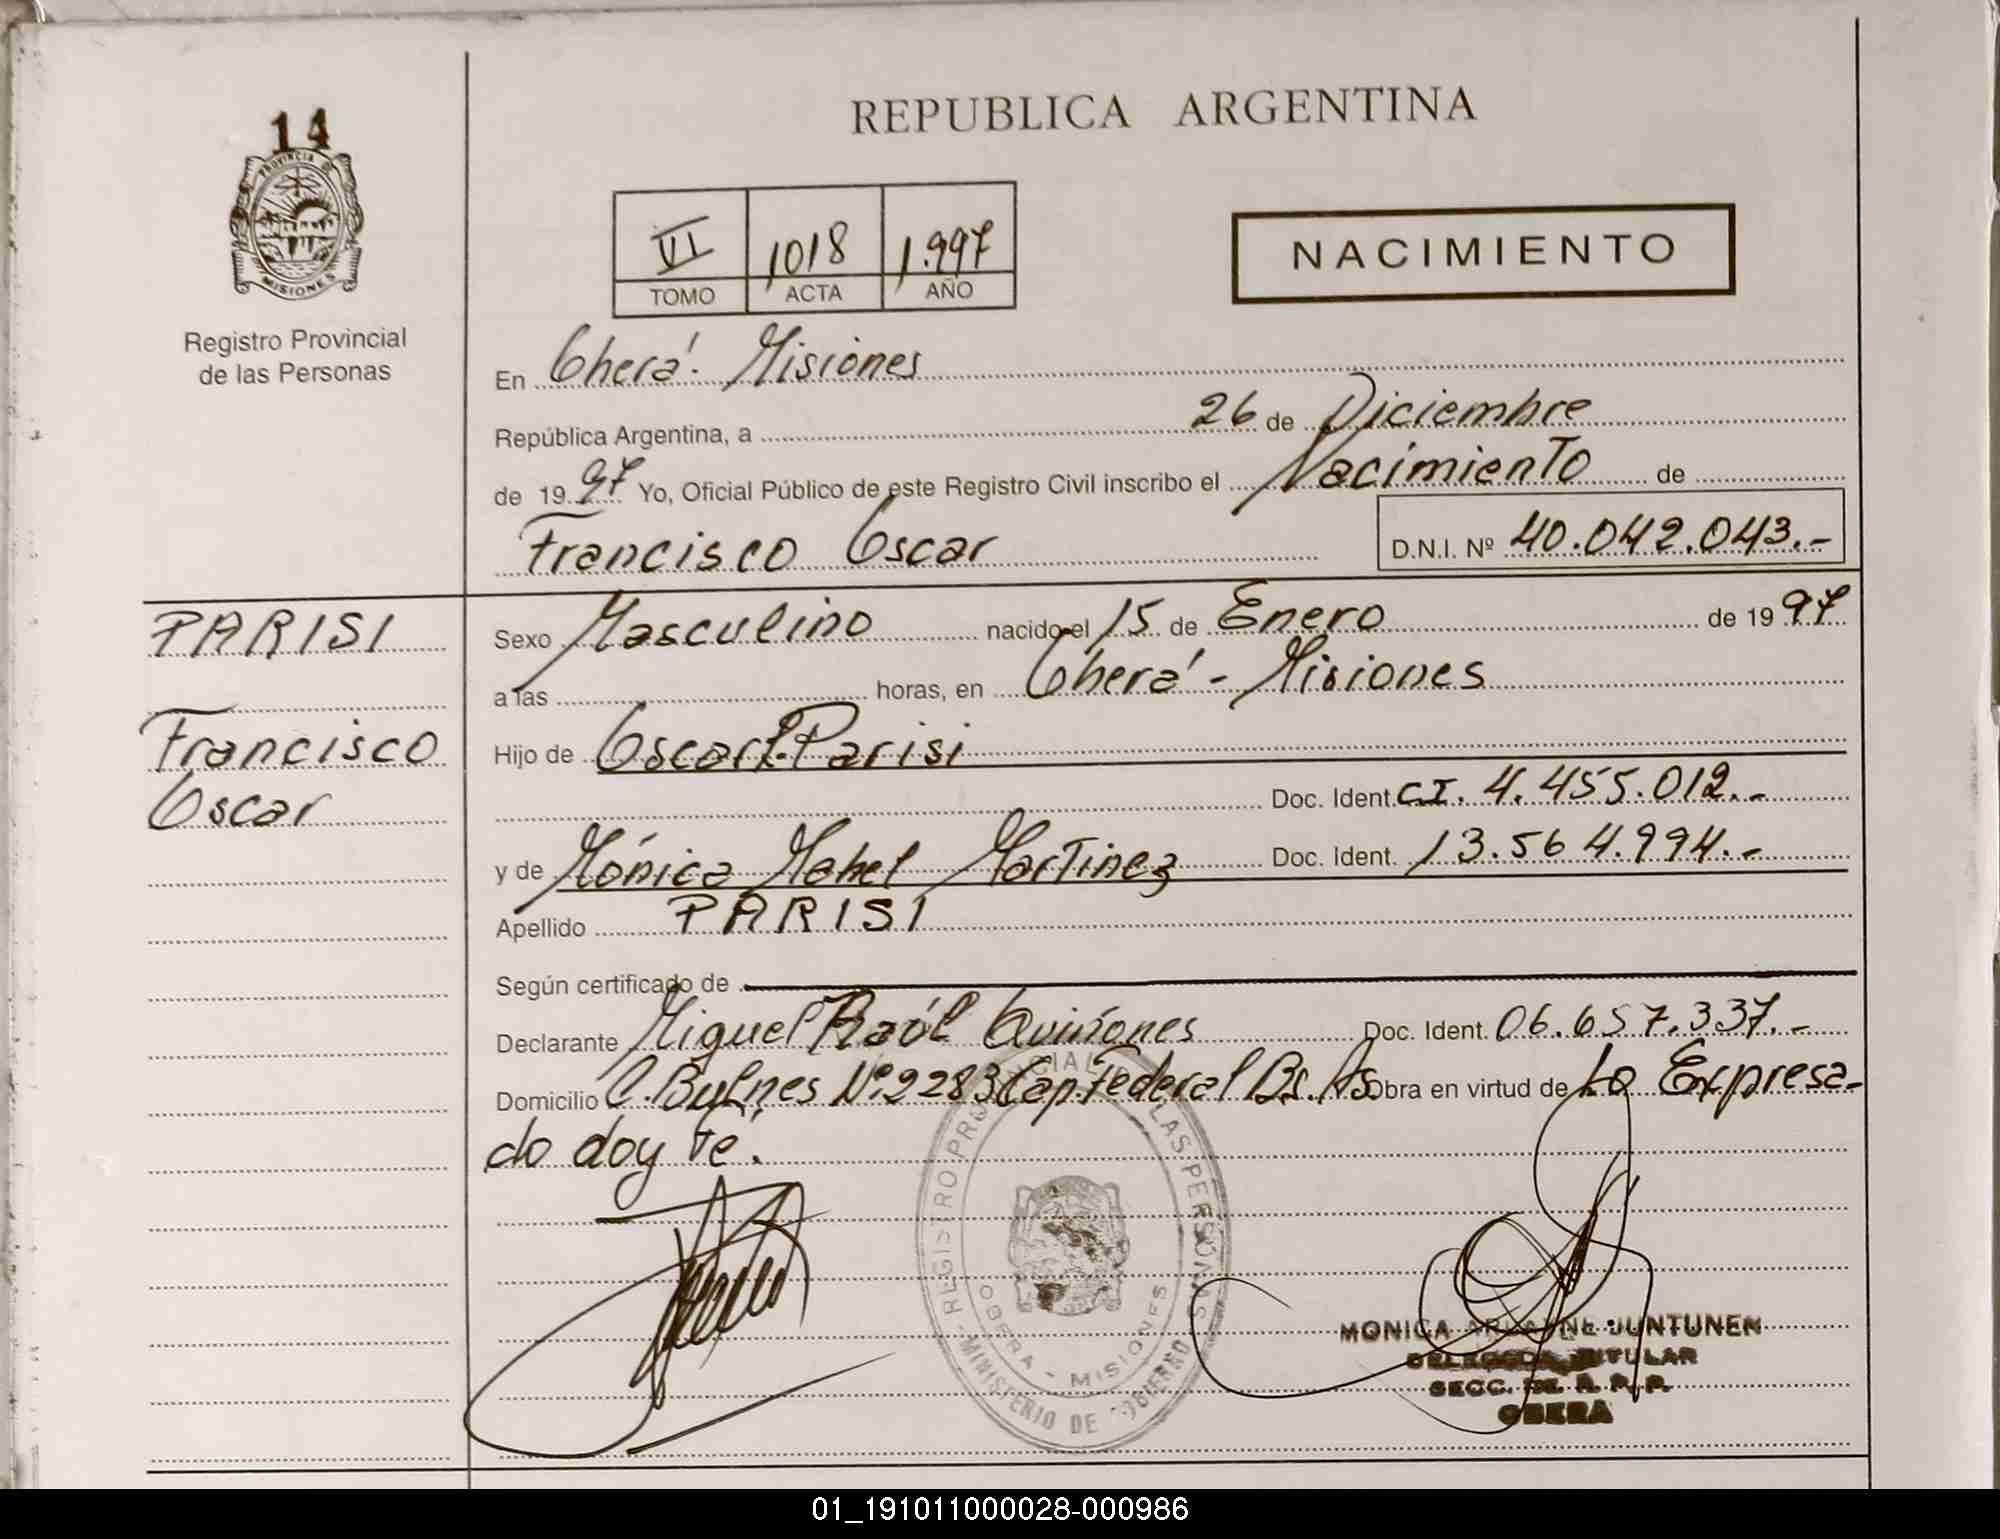 14
PROVINCIA D
MISIONES
Registro Provincial
de las Personas
REPUBLICA ARGENTINA
VI 1018 1.997
TOMO ACTA AÑO
NACIMIENTO
En Oberá. Misiones
República Argentina, a 26 de Diciembre
de 1997 Yo, Oficial Público de este Registro Civil inscribo el Nacimiento de
Francisco Oscar D.N.I. Nº 40.042.043.-
PARISI
Francisco
Oscar
Sexo Masculino nacido el 15 de Enero de 1997
a las horas, en Oberá - Misiones
Hijo de Oscar L. Parisi
Doc. Ident. C.I. 4.455.012.-
y de Mónica Mabel Martinez Doc. Ident. 13.564.994.-
Apellido PARISI
Según certificado de
Declarante Miguel Raúl Quiñones Doc. Ident. 06.657.337.-
Domicilio C. Bulnes Nº 2283 Cap. Federal Bs. As Obra en virtud de Lo Expresa-
do doy Fe.
REGISTRO PROVINCIAL LAS PERSONAS
OBERA - MISIONES
MINISTERIO DE GOBIERNO
MONICA JUNTUNEN
DELEGADA TITULAR
SECC. DE R. P. P.
OBERA
01_191011000028-000986